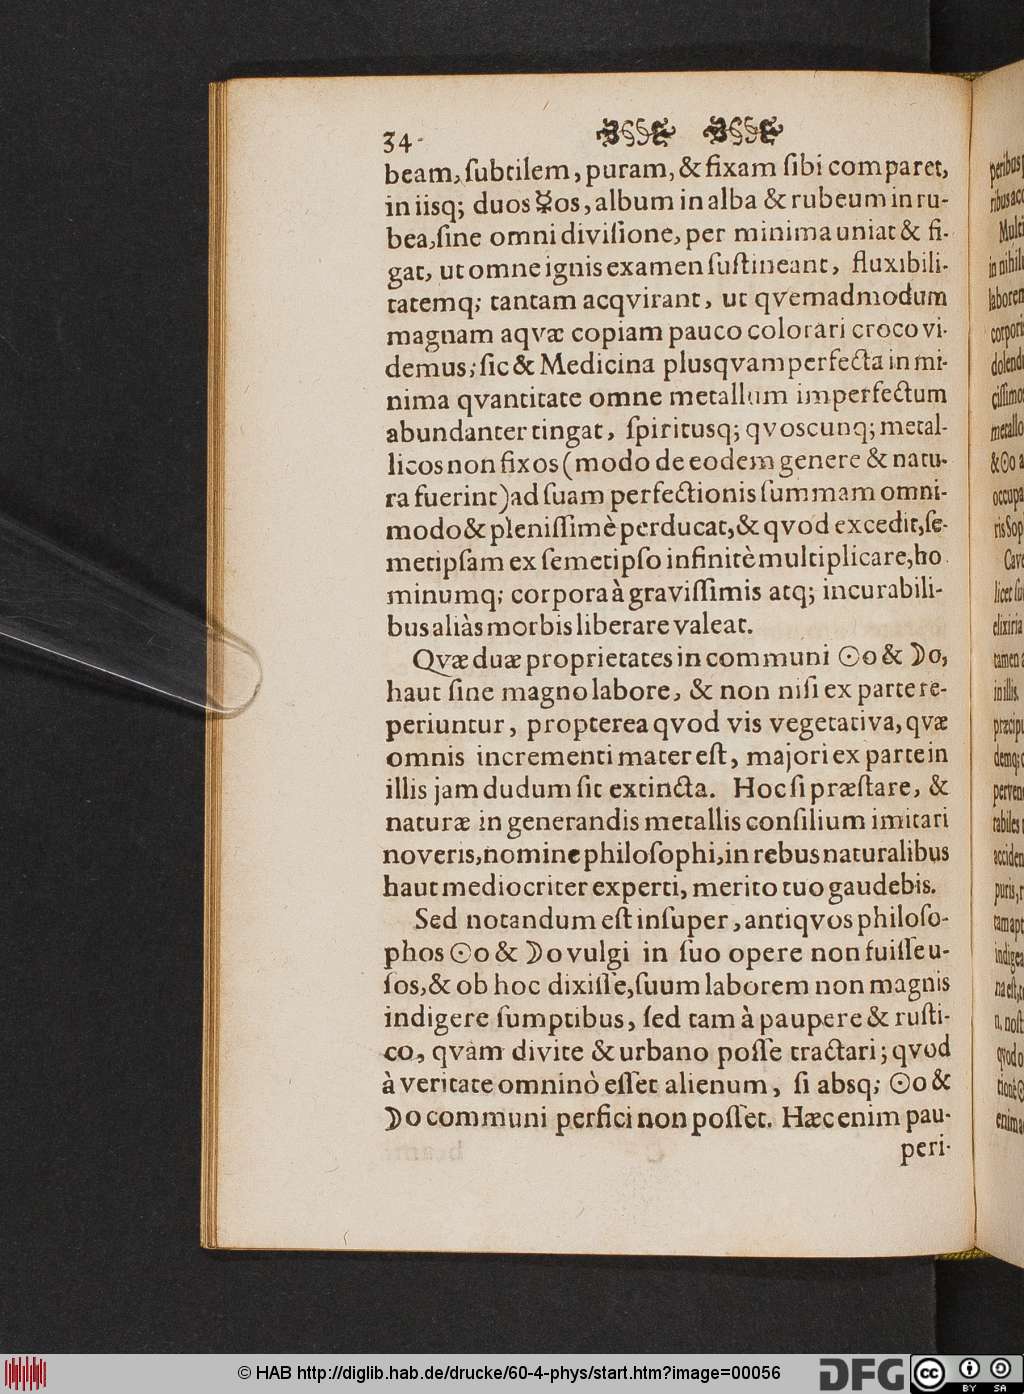 34
beam, ſubtilem, puram, & fixam ſibi comparet,
in iisq; duos ☿os, album in alba & rubeum in ru-
bea, ſine omni diviſione, per minima uniat & fi-
gat, ut omne ignis examen ſuſtineant, fluxibili-
tatemq; tantam acqvirant, ut qvemadmodum
magnam aqvæ copiam pauco colorari croco vi-
demus; ſic & Medicina plusqvamperfecta in mi-
nima qvantitate omne metallum imperfectum
abundanter tingat, ſpiritusq; qvoscunq; metal-
licos non fixos (modo de eodem genere & natu-
ra fuerint) ad ſuam perfectionis ſummam omni-
modo & pleniſſimè perducat, & qvod excedit, ſe-
metipſam ex ſemetipſo infinitè multiplicare, ho
minumq; corpora à graviſſimis atq; incurabili-
bus aliàs morbis liberare valeat.
Qvæ duæ proprietates in communi ☉o & ☽o,
haut ſine magno labore, & non niſi ex parte re-
periuntur, propterea qvod vis vegetativa, qvæ
omnis incrementi mater eſt, majori ex parte in
illis jam dudum ſit extincta. Hoc ſi præſtare, &
naturæ in generandis metallis conſilium imitari
noveris, nomine philoſophi, in rebus naturalibus
haut mediocriter experti, merito tuo gaudebis.
Sed notandum eſt inſuper, antiqvos philoſo-
phos ☉o & ☽o vulgi in ſuo opere non fuiſſe u-
ſos, & ob hoc dixiſſe, ſuum laborem non magnis
indigere ſumptibus, ſed tam à paupere & ruſti-
co, qvàm divite & urbano poſſe tractari; qvod
à veritate omninò eſſet alienum, ſi absq; ☉o &
☽o communi perfici non poſſet. Hæc enim pau-
peri-
peribus
ribus acc
Multi
in nihil
laborem
corporis
dolend
ciſſimo
metallo
& ☉o a
occupa
ris Sop
Cave
licet ſu
elixiria
tamen a
in illis.
præcip
demq;
perven
rabiles
acciden
puris,
tam apt
indigea
na eſt,
n. noſt
qvod o
tione
enim a
© HAB http://diglib.hab.de/drucke/60-4-phys/start.htm?image=00056
DFG
cc
BY SA